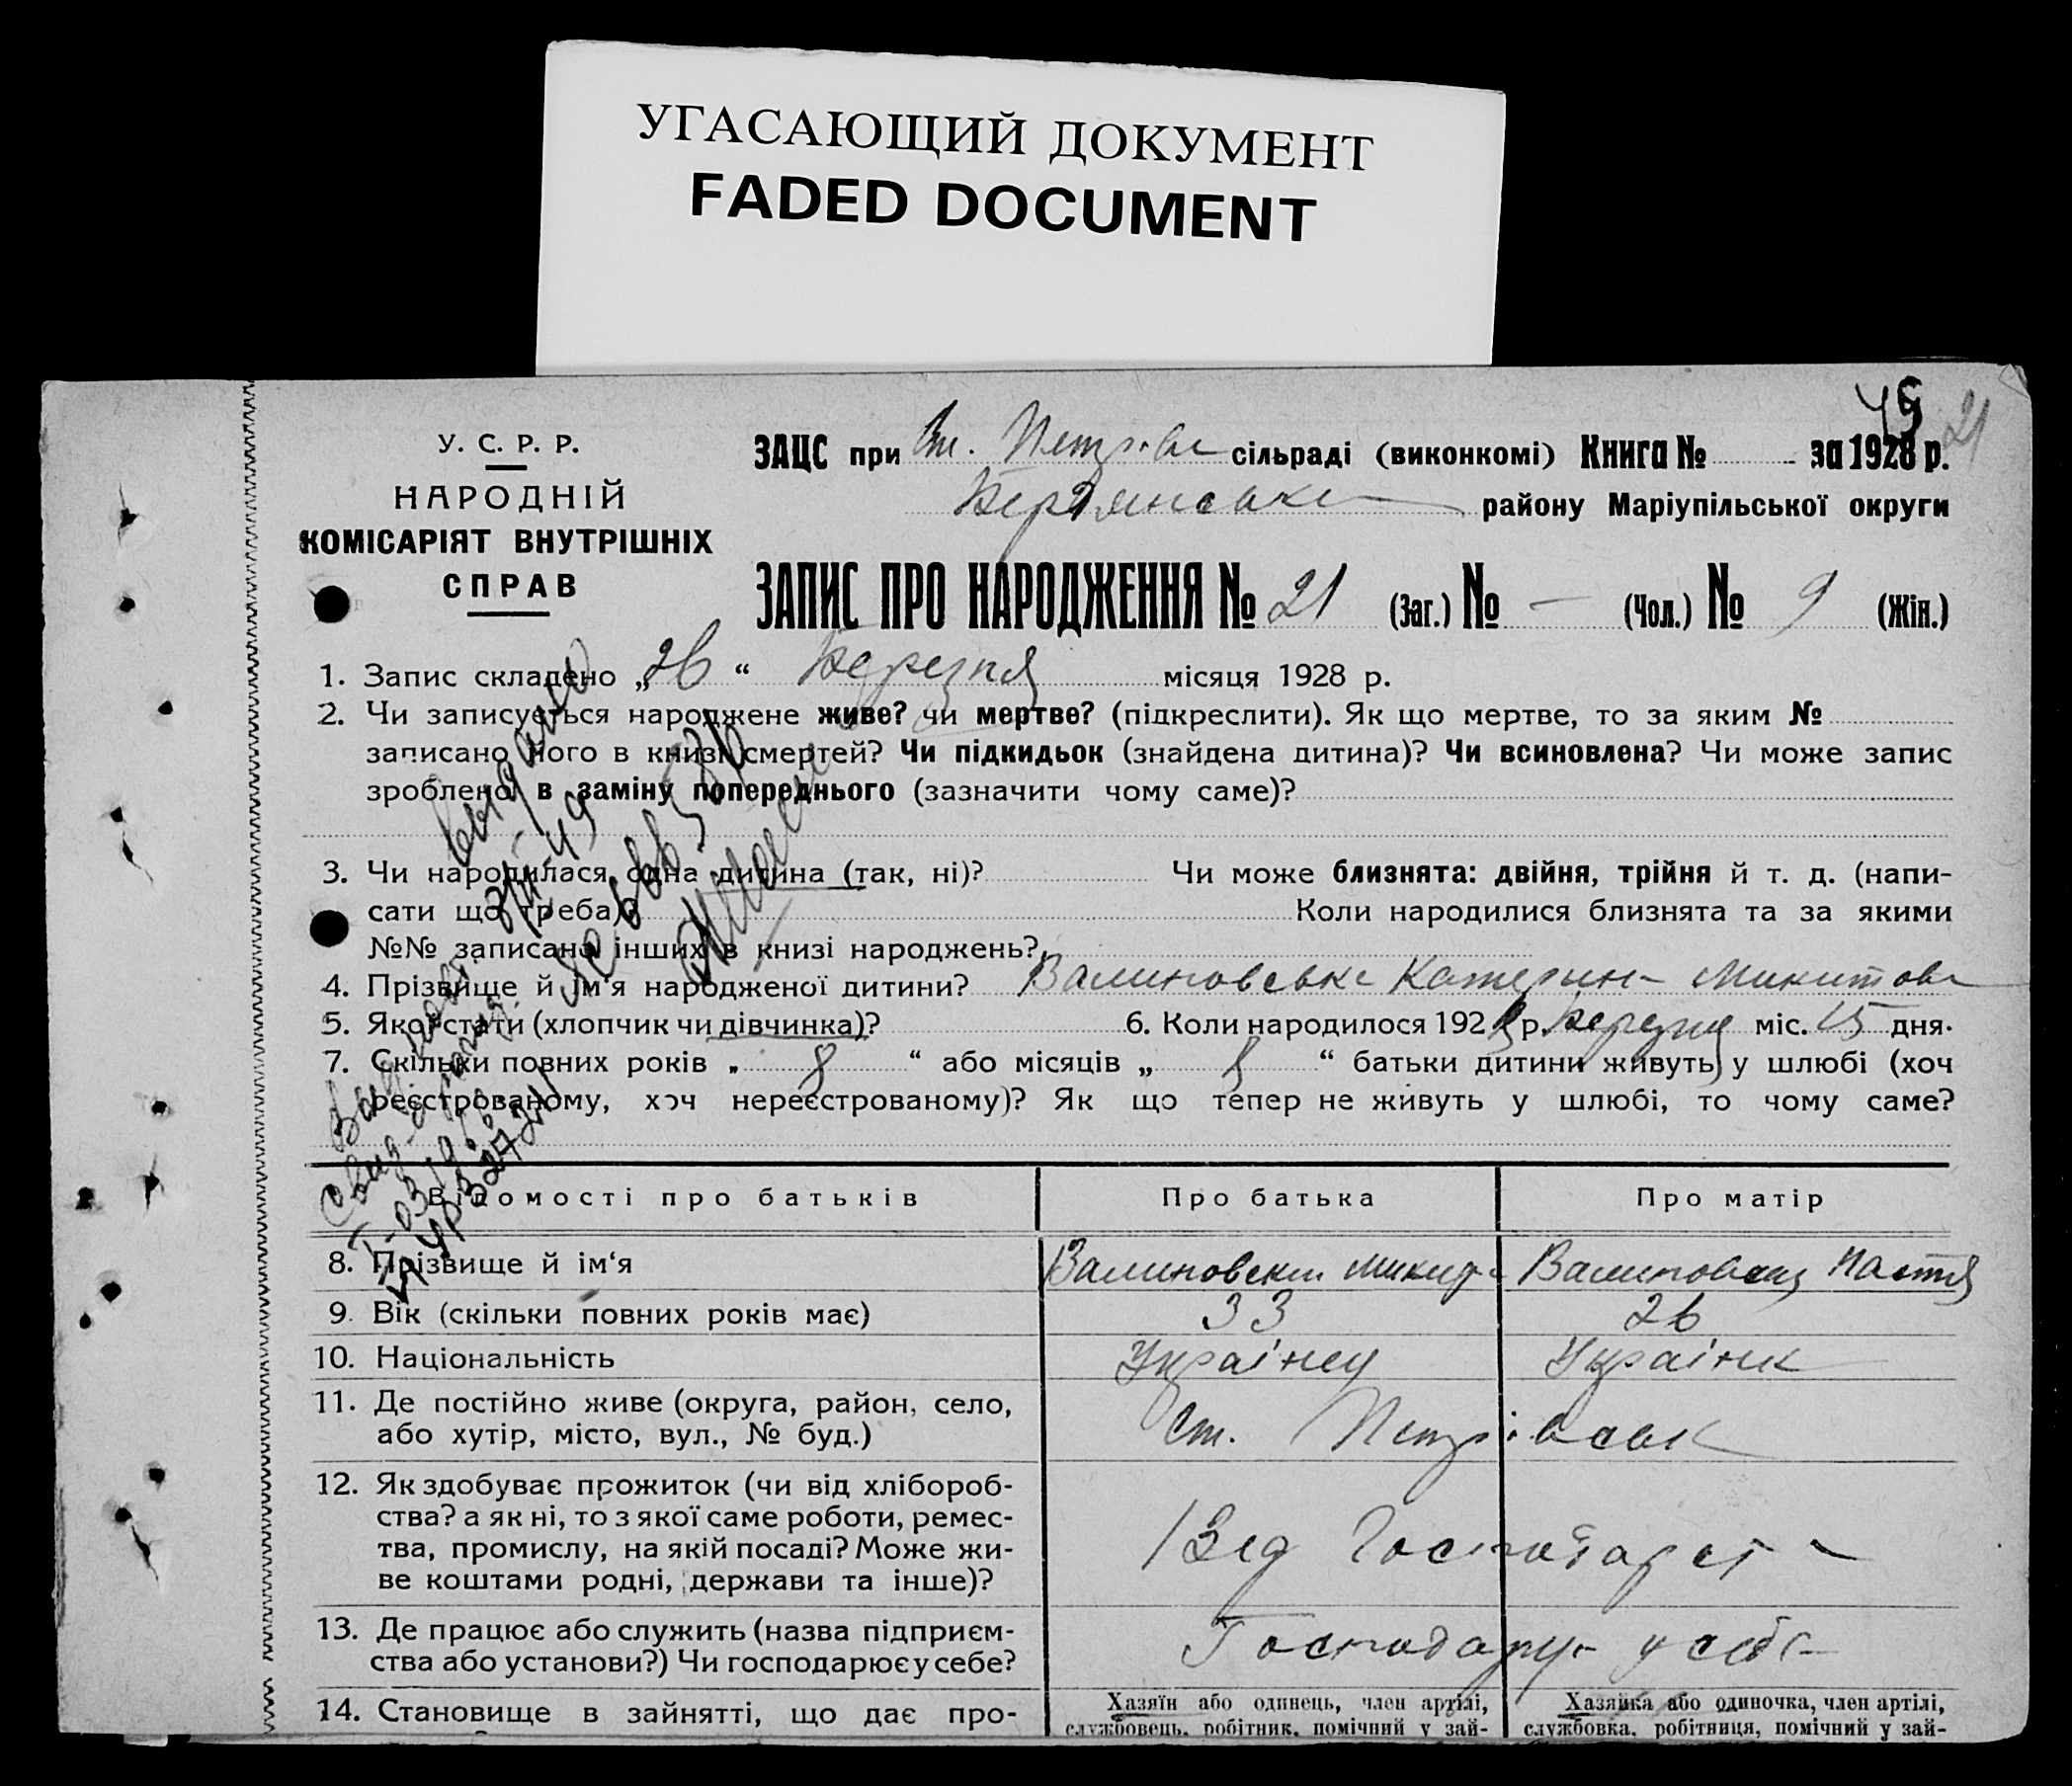 УГАСАЮЩИЙ ДОКУМЕНТ
FADED DOCUMENT
21
У. С. Р. Р.
НАРОДНІЙ
КОМІСАРІЯТ ВНУТРІШНІХ
СПРАВ
ЗАЦС при Ст. Петрівс сільраді (виконкомі) Книга № за 1928 р.
Бердянськ району Маріупільської округи
ЗАПИС ПРО НАРОДЖЕННЯ № 21 (Заг.) № — (Чол.) № 9 (Жін.)
1. Запис складено „26“ Березня місяця 1928 р.
2. Чи записується народжене живе? чи мертве? (підкреслити). Як що мертве, то за яким №
записано його в книзі смертей? Чи підкидьок (знайдена дитина)? Чи всиновлена? Чи може запис
зроблено в заміну попереднього (зазначити чому саме)?
3. Чи народилася одна дитина (так, ні)? Чи може близнята: двійня, трійня й т. д. (напи-
сати що треба)? Коли народилися близнята та за якими
№№ записано інших в книзі народжень?
4. Прізвище й ім'я народженої дитини? Валиновська Катерин Микитовн
5. Якої стати (хлопчик чи дівчинка)? 6. Коли народилося 1928 р. Березня міс. 15 дня.
7. Скільки повних років „ 8 “ або місяців „ “ батьки дитини живуть у шлюбі (хоч
реєстрованому, хоч нереєстрованому)? Як що тепер не живуть у шлюбі, то чому саме?
Відомості про батьків Про батька Про матір
8. Прізвище й ім‘я Валиновский Микит Валиновская Настя
9. Вік (скільки повних років має) 33 26
10. Національність Українец Українк
11. Де постійно живе (округа, район, село,
або хутір, місто, вул., № буд.) Ст. Петрівськ
12. Як здобуває прожиток (чи від хлібороб-
ства? а як ні, то з якої саме роботи, ремес-
тва, промислу, на якій посаді? Може жи-
ве коштами родні, держави та інше)? Від Господарст
13. Де працює або служить (назва підприєм-
ства або установи?) Чи господарює у себе? Господарує у себе
14. Становище в зайнятті, що дає про- Хазяїн або одинець, член артілі, Хазяйка або одиночка, член артілі,
службовець, робітник, помічний у зай- службовка, робітниця, помічний у зай-